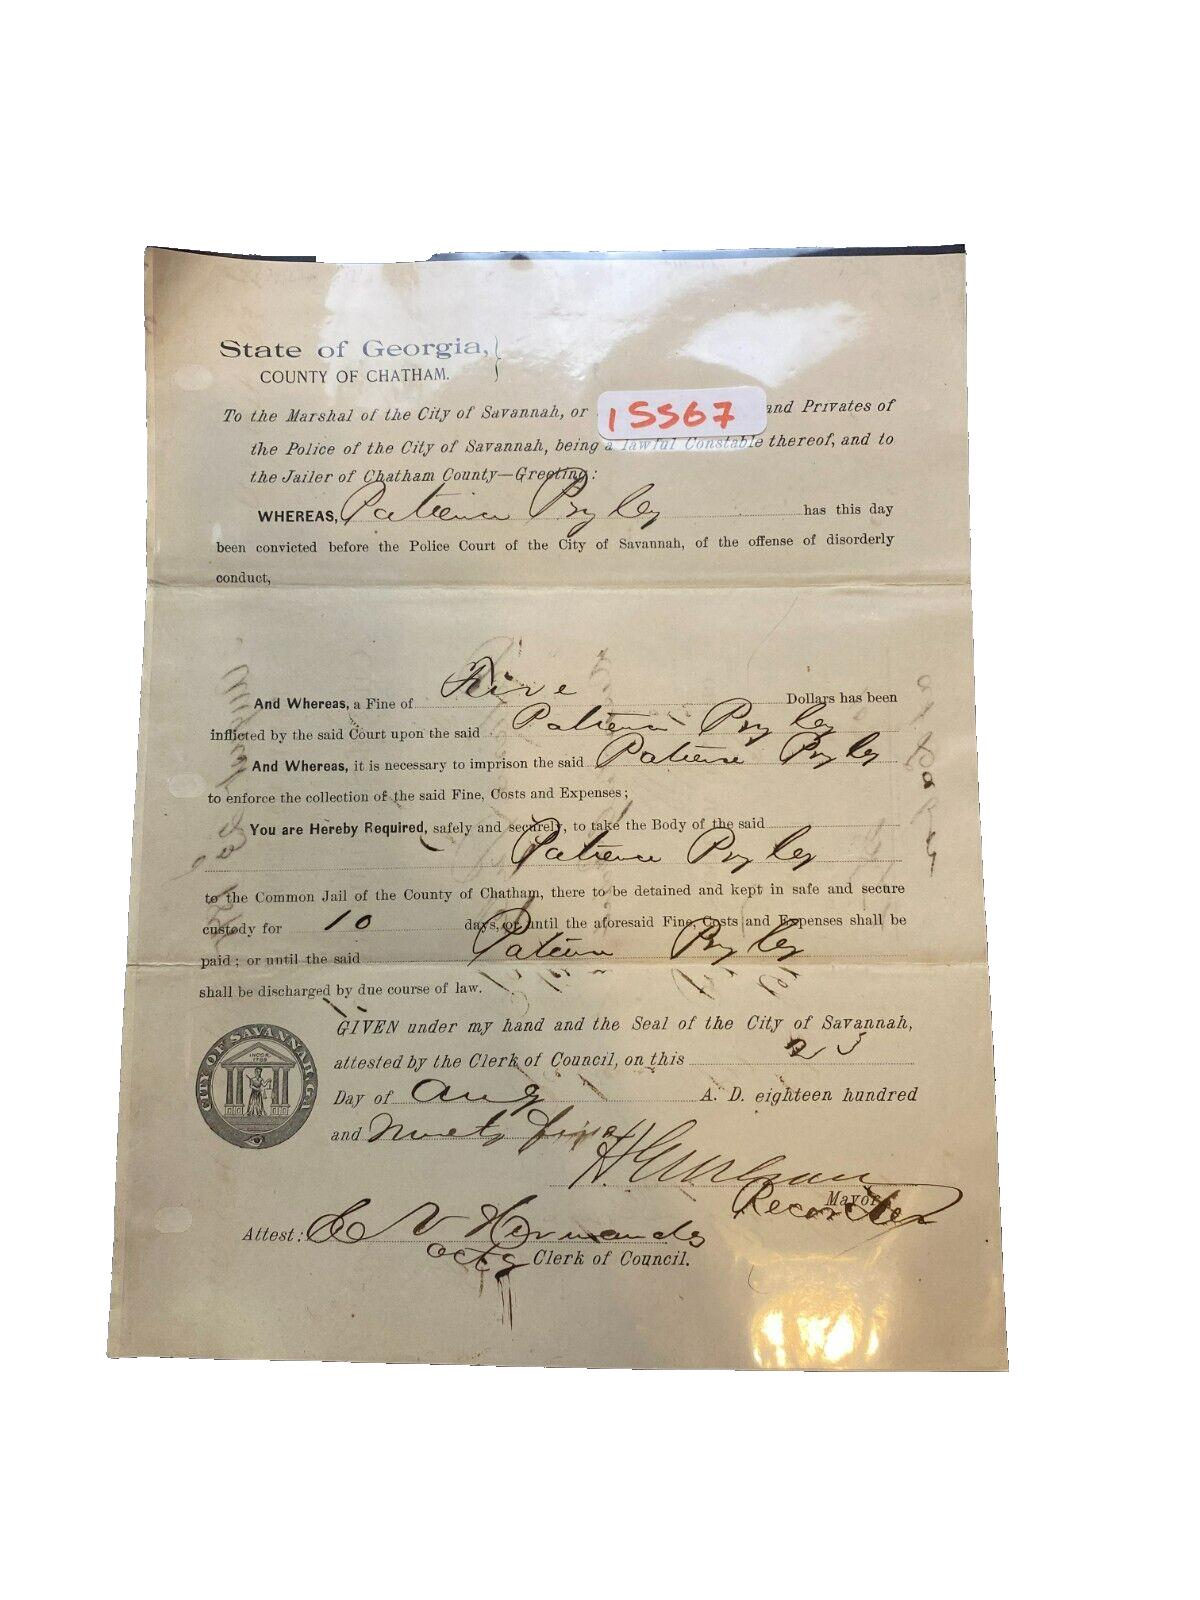 State of Georgia,
COUNTY OF CHATHAM.
15567
To the Marshal of the City of Savannah, or and Privates of
the Police of the City of Savannah, being a lawful Constable thereof, and to
the Jailer of Chatham County—Greeting:
WHEREAS, Patience Pryley has this day
been convicted before the Police Court of the City of Savannah, of the offense of disorderly
conduct,
And Whereas, a Fine of Five Dollars has been
inflicted by the said Court upon the said Patience Pryley
And Whereas, it is necessary to imprison the said Patience Pryley
to enforce the collection of the said Fine, Costs and Expenses;
You are Hereby Required, safely and securely, to take the Body of the said
Patience Pryley
to the Common Jail of the County of Chatham, there to be detained and kept in safe and secure
custody for 10 days, or until the aforesaid Fine, Costs and Expenses shall be
paid; or until the said Patience Pryley
shall be discharged by due course of law.
CITY OF SAVANNAH, GA
INCOR. 1789
GIVEN under my hand and the Seal of the City of Savannah,
attested by the Clerk of Council, on this 23
Day of Aug A. D. eighteen hundred
and Ninety five
Mayor
Recorder
Attest:
actg Clerk of Council.